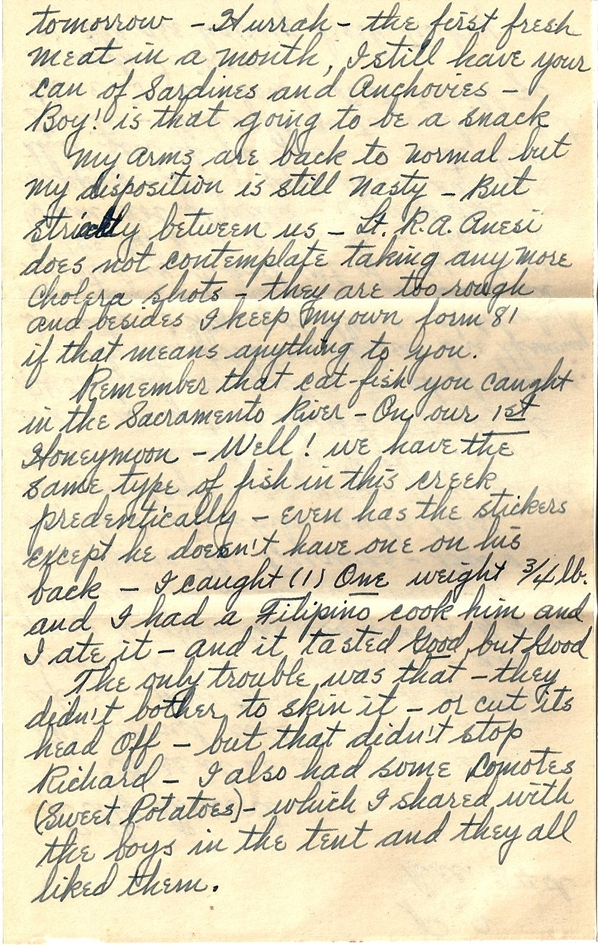 tomorrow - Hurrah - the first fresh
meat in a month, I still have your
can of Sardines and Anchovies -
Boy! is that going to be a snack
My arms are back to normal but
my disposition is still nasty - But
strictly between us - Lt. R.A. Anesi
does not contemplate taking any more
Cholera shots - they are too rough
and besides I keep my own form 81
if that means anything to you.
Remember that cat-fish you caught
in the Sacramento River - On our 1st
Honeymoon - Well! we have the
same type of fish in this creek
predentically - even has the stickers
except he doesn't have one on his
back - I caught (1) One weight 3/4 lb.
and I had a Filipino cook him and
I ate it - and it tasted Good, but Good
The only trouble was that - they
didn't bother to skin it - or cut its
head Off - but that didn't stop
Richard - I also had some Comotes
(Sweet Potatoes) - which I shared with
the boys in the tent and they all
liked them.